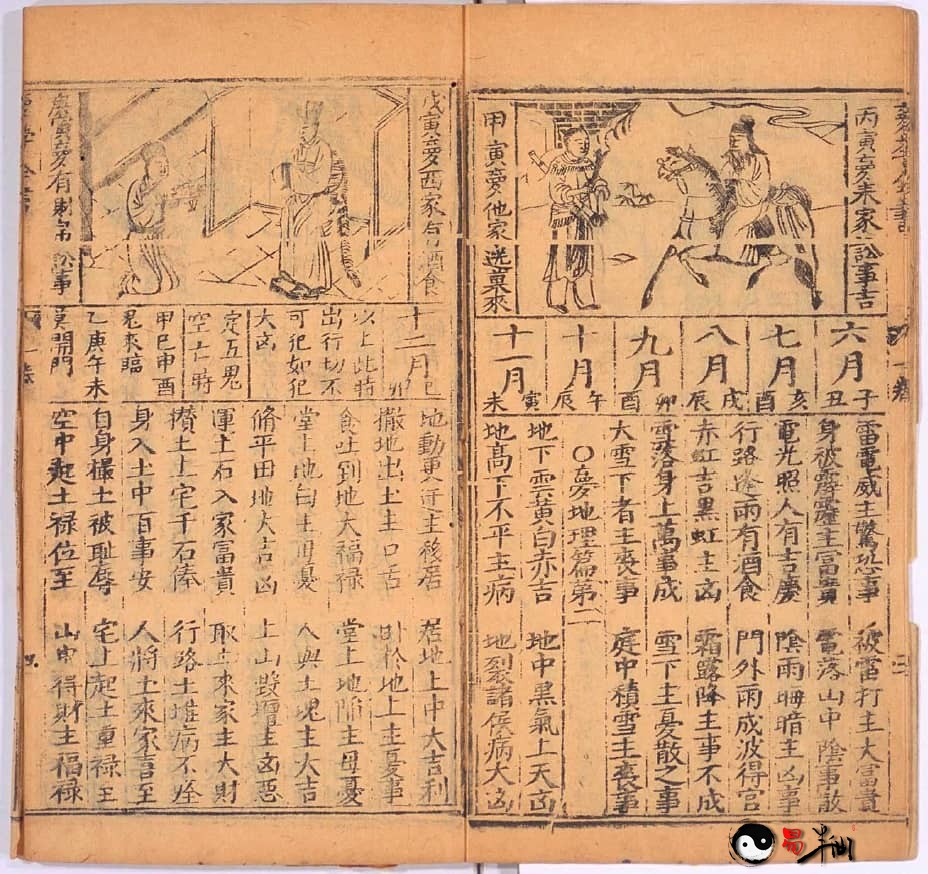 丙寅夢末家訟事吉
甲寅夢他家選菓來
六月 子丑
七月 亥酉
八月 戌辰
九月 卯酉
十月 午辰
十一月 寅未
雷電威主驚恐事 被雷打主大富貴
身被霹靂主富貴 電落山中陰事散
電光照人有吉慶 陰雨晦暗主凶事
行路逢雨有酒食 門外雨成波得官
赤虹吉黑虹主凶 霜露降主事不成
雪落身上萬事成 雪下主憂散之事
大雪下者主喪事 庭中積雪主喪事
○夢地理篇第二
地下雲黃白赤吉 地中黑氣上天凶
地高下不平主病 地裂諸侯病大凶
戊寅夢西家有酒食
庚寅夢有財帛訟事
十二月 巳卯
以上此時
出行切不
可犯如犯
大凶
定五鬼
空亡時
甲巳申酉
鬼來臨
乙庚午未
莫開門
地動更主移居 居地上中大吉利
撒地出土主口舌 卧於地上主憂事
食吐到地大福祿 堂上地陷主母憂
堂上地主母憂 人與土塊主大吉
脩平田地大吉凶 上山毀主凶惡
運土石入家富貴 取土來家主大財
攅土上宅千石俸 行路土堆病不痊
身入土中百事安 人將土來家言至
自身攞土被耻辱 宅上起土重祿至
空中起土祿位至 山中得財主福祿
易半仙